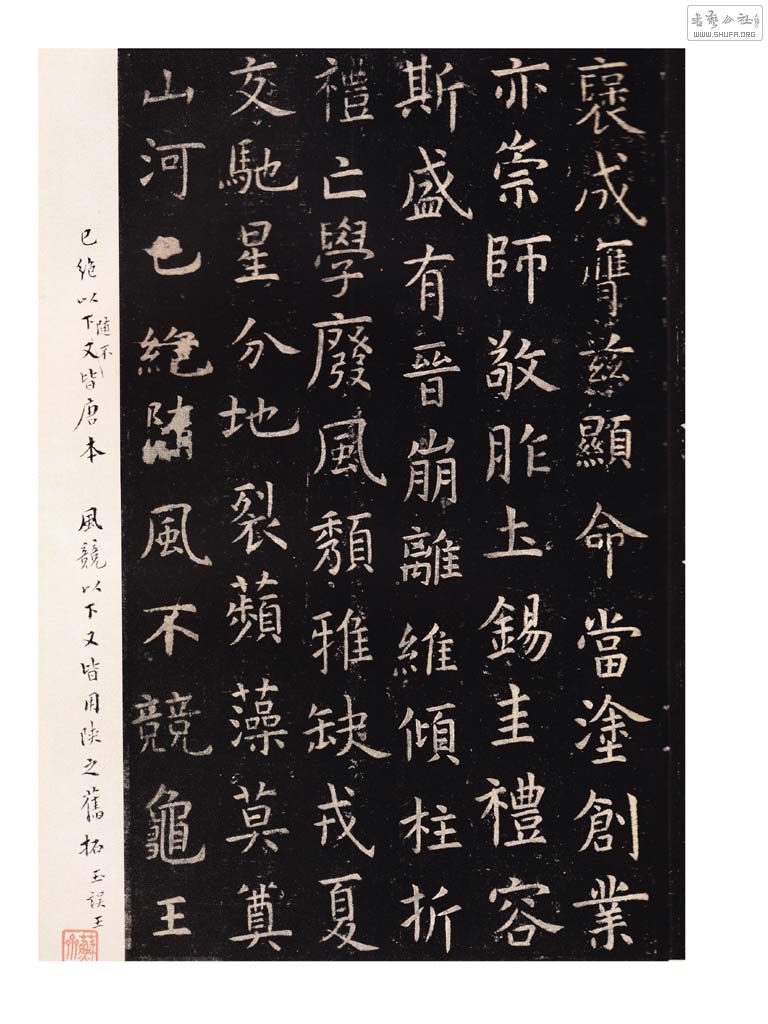 書藝公社
WWW.SHUFA.ORG
褒成膺兹顯命當塗創業
亦崇師敬胙土錫圭禮容
斯盛有晉崩離維傾柱折
禮亡學廢風頽雅缺戎夏
交馳星分地裂蘋藻莫奠
山河已絕隨風不競龜王
已絕以下隨不又皆唐本 風競以下又皆用陝之舊拓 玉誤王